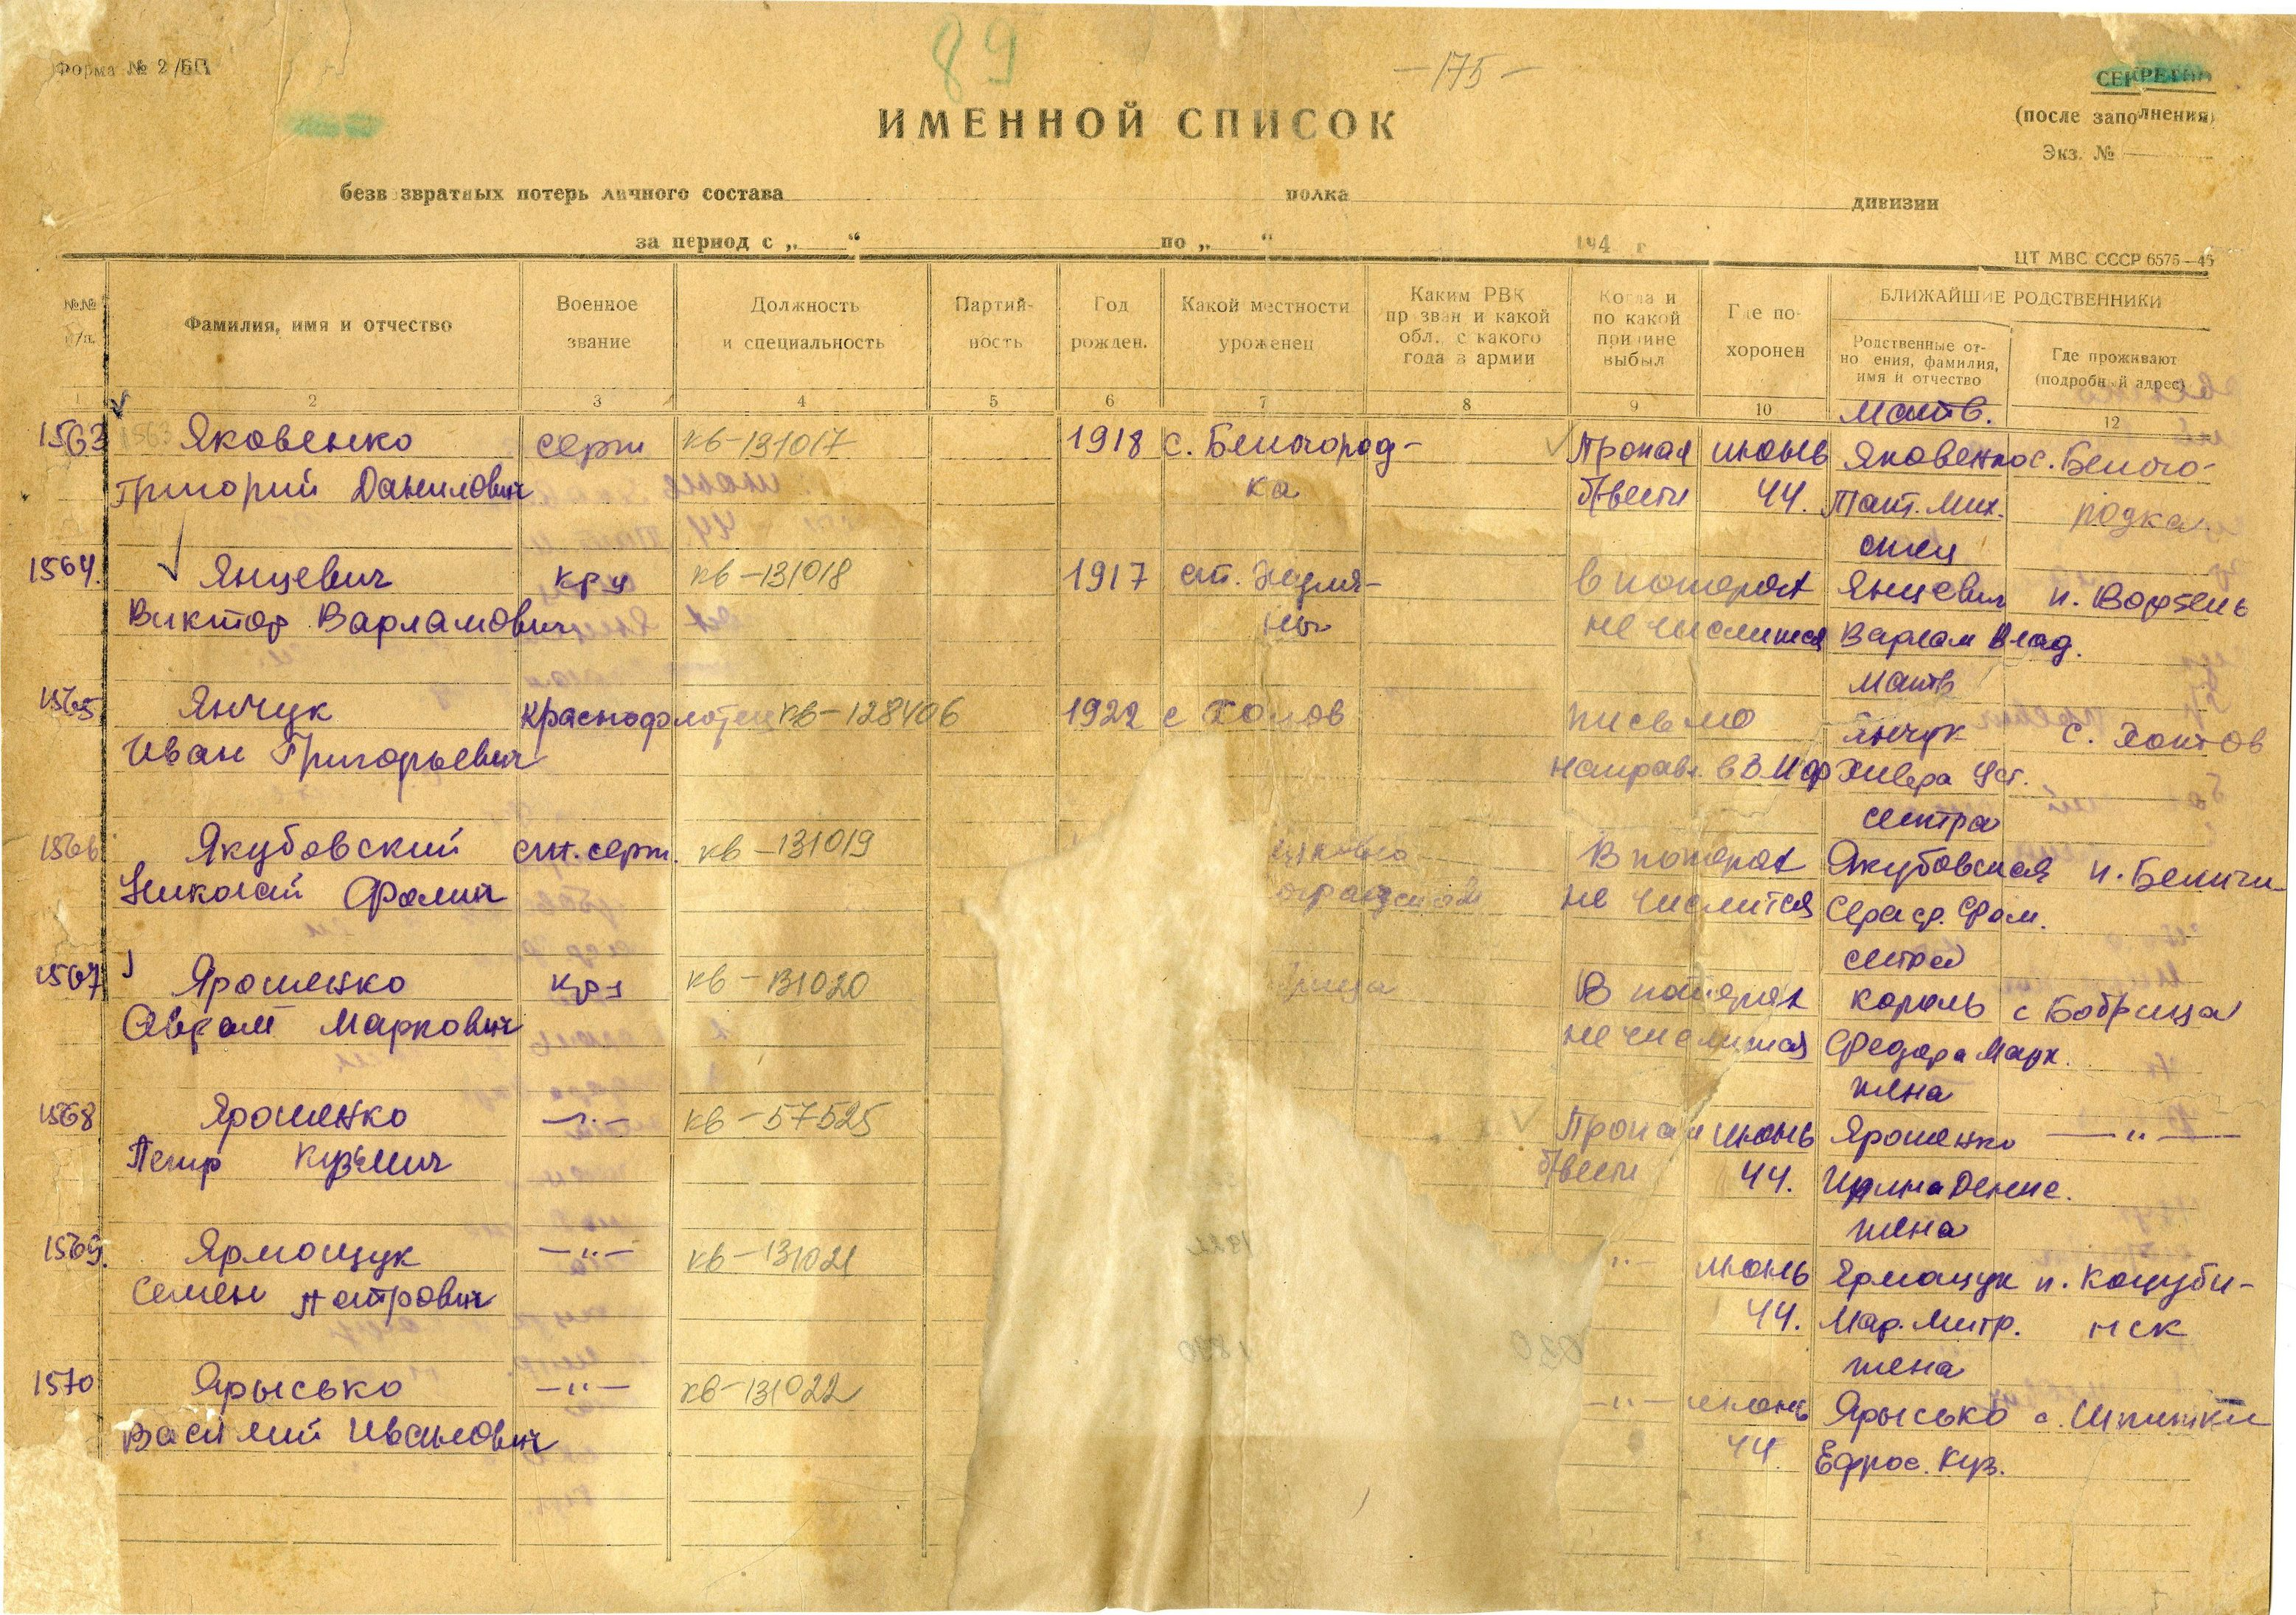 89
— 175 —
Форма № 2/БП
СЕКРЕТНО
(после заполнения)
Экз. №
ИМЕННОЙ СПИСОК
безв звратных потерь личного состава полка дивизии
за период с „ “ по „ “ 194 г
ЦТ МВС СССР 6575—45
№№ п/п.
Фамилия, имя и отчество
Военное звание
Должность и специальность
Партийность
Год рожден.
Какой местности уроженец
Каким РВК пр зван и какой обл. с какого года в армии
Когда и по какой причине выбыл
Где похоронен
БЛИЖАЙШИЕ РОДСТВЕННИКИ
Родственные отно ения, фамилия, имя и отчество
Где проживают (подробный адрес)
1 2 3 4 5 6 7 8 9 10 12
мать.
1563 1563 Яковенко серж кв-131017 1918 с. Белогород- Пропал июнь Яковенко с. Бело-
Григорий Данилович ка б/вести 44. Тат. Мих. родка
отец
1564. Янцевич кр-ц кв-131018 1917 ст. в потерях Янцевич п.
Виктор Варламович не числится Варлам Влад.
мать
1565 Янчук Краснофлотец кв-128406 1922 с письмо Янчук с.
Иван Григорьевич направл. в ВМФ
сестра
1566 Якубовский ст. серж. кв-131019 В потерях Якубовская п. Беличи
Николай Фомич не числится Сераф. Фом.
сестра
1567 Ярошенко кр-ц кв-131020 рица В потерях король с Бобрица
Абрам Маркович не числится Федора Марк.
жена
1568 Ярошенко —"— кв-57525 Пропал июнь Ярошенко —"—
Петр Кузьмич б/вести 44. Ирина Денис.
жена
1569. Ярмощук —"— кв-131021 "— июнь Ярмощук п. Коцуби-
Семен Петрович 44. Мар. Митр. нск
жена
1570 Ярысько —"— кв-131022 —"— июнь Ярысько с. Шпитьки
Василий Иванович 44. Ефрос. Куз.